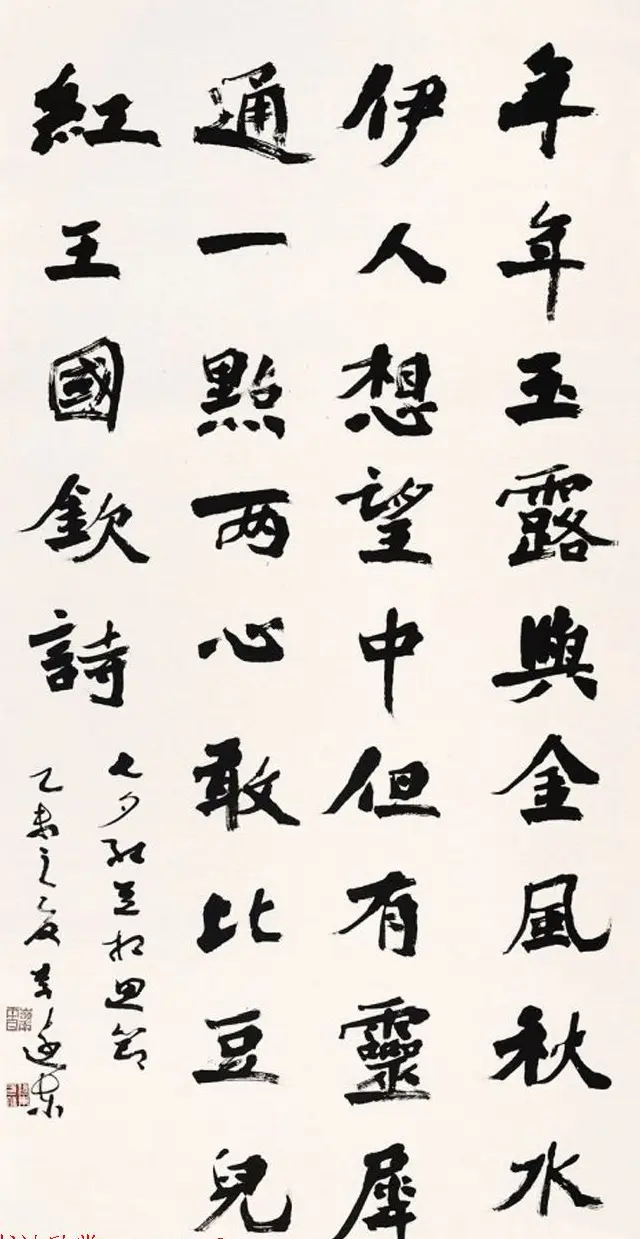 年年玉露與金風秋水
伊人想望中但有靈犀
通一點兩心敢比豆兒
紅王國欽詩
七夕紅豆相思節
乙未之夏